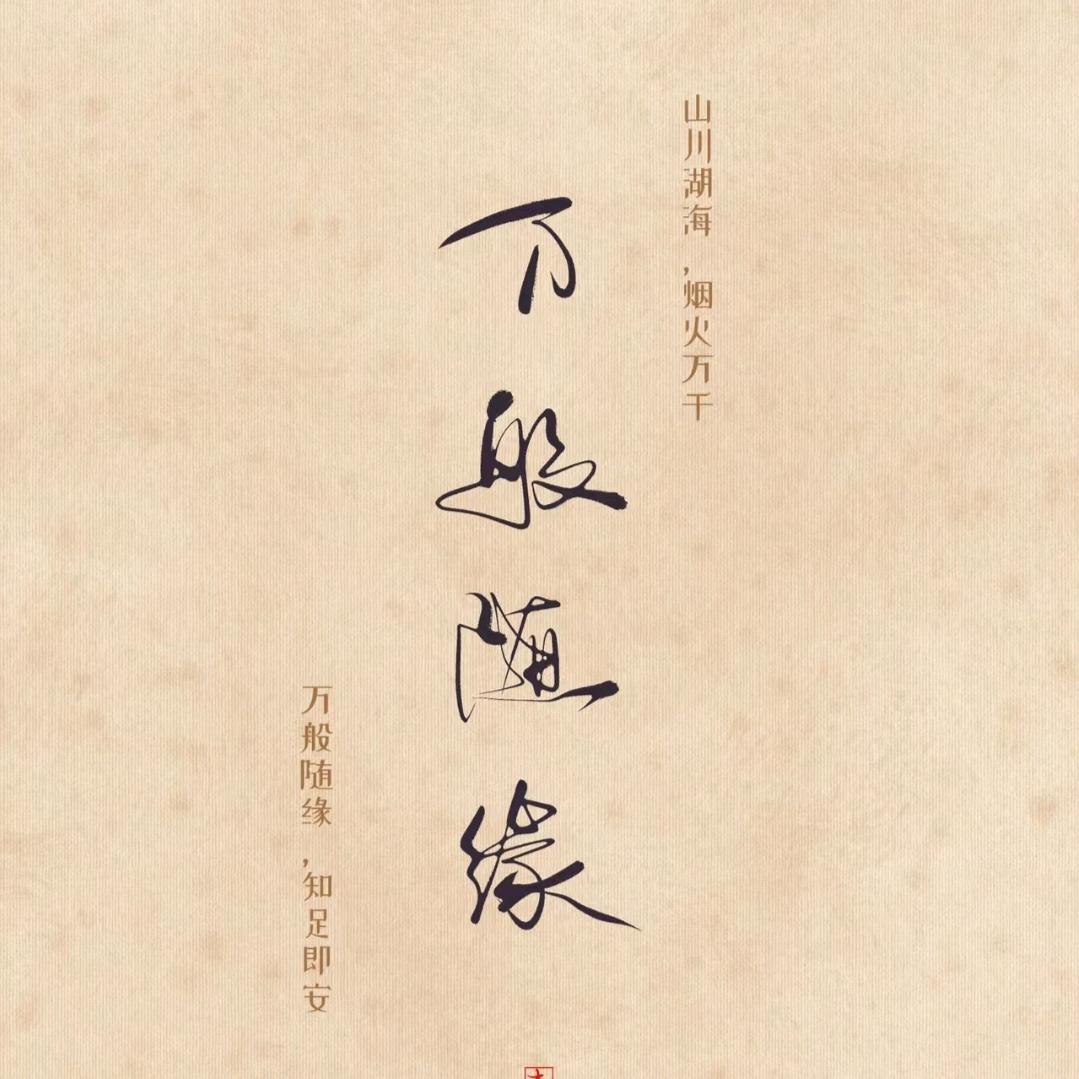 山川湖海，烟火万千
万般随缘
万般随缘，知足即安